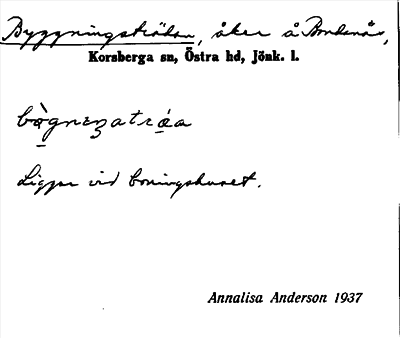 Byggningsträdan, åker å Bondenäs,
Korsberga sn, Östra hd, Jönk. l.
Ligger vid boningshuset.
Annalisa Anderson 1937